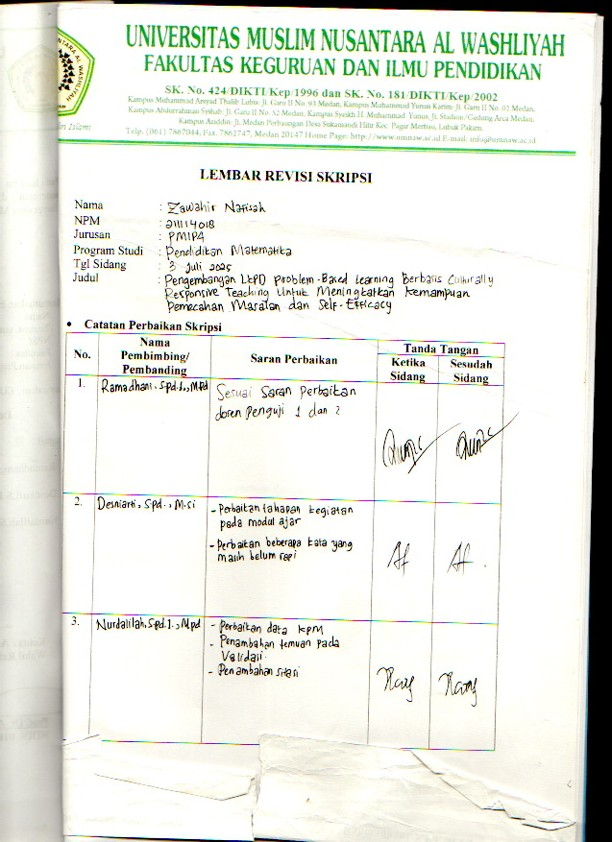 UNIVERSITAS MUSLIM NUSANTARA AL WASHLIYAH
FAKULTAS KEGURUAN DAN ILMU PENDIDIKAN
SK. No. 424/DIKTI/Kep/1996 dan SK. No. 181/DIKTI/Kep/2002
Kampus Muhammad Arsyad Thalib Lubis: Jl. Garu II No. 93 Medan, Kampus Muhammad Yunus Karim: Jl. Garu II No. 02 Medan,
Kampus Abdurrahman Syihab: Jl. Garu II No. 52 Medan, Kampus Syeikh H. Muhammad Yunus, Jl. Stadion/Gedung Arca Medan,
Kampus Jl. Medan Perbaungan Desa Sukamandi Hilir Kec. Pagar Merbau, Lubuk Pakam.
Telp. (061) 7867044, Fax. 7862747, Medan 20147 Home Page: http://www.umnaw.ac.id E-mail: info@umnaw.ac.id
LEMBAR REVISI SKRIPSI
Nama : Zawahir Nafisah
NPM : 211114018
Jurusan : PMIPA
Program Studi : Pendidikan Matematika
Tgl Sidang : 3 Juli 2025
Judul : Pengembangan LKPD Problem-Based Learning Berbasis Culturally
Responsive Teaching Untuk Meningkatkan Kemampuan
Pemecahan Masalah dan Self-Efficacy
• Catatan Perbaikan Skripsi
No. Nama Pembimbing/ Pembanding Saran Perbaikan Tanda Tangan
Ketika Sidang Sesudah Sidang
1. Ramadhani, S.Pd.I., M.Pd Sesuai Saran perbaikan
dosen Penguji 1 dan 2
2. Desniarti, S.Pd., M.Si - Perbaikan tahapan kegiatan
pada modul ajar
- Perbaikan beberapa kata yang
masih belum rapi
3. Nurdalilah, S.Pd.I., M.Pd - Perbaikan data KPM
- Penambahan temuan pada
Validasi
- Penambahan sitasi